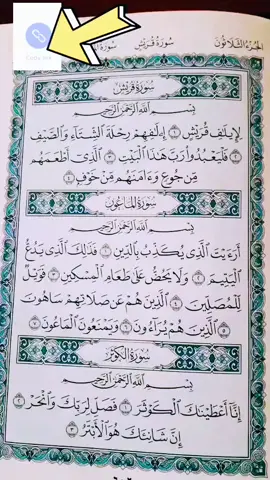 Copy link
سُورَةُ قُرَيْشٍ
الجُزْءُ الثَّلَاثُونَ
سُورَةُ قُرَيْشٍ
بِسْمِ اللَّهِ الرَّحْمَٰنِ الرَّحِيمِ
لِإِيلَٰفِ قُرَيْشٍ ١ إِۦلَٰفِهِمْ رِحْلَةَ الشِّتَآءِ وَالصَّيْفِ
٢ فَلْيَعْبُدُوا۟ رَبَّ هَٰذَا الْبَيْتِ ٣ الَّذِىٓ أَطْعَمَهُم
مِّن جُوعٍ وَءَامَنَهُم مِّنْ خَوْفٍۭ ٤
سُورَةُ المَاعُونِ
بِسْمِ اللَّهِ الرَّحْمَٰنِ الرَّحِيمِ
أَرَءَيْتَ الَّذِى يُكَذِّبُ بِالدِّينِ ١ فَذَٰلِكَ الَّذِى يَدُعُّ
الْيَتِيمَ ٢ وَلَا يَحُضُّ عَلَىٰ طَعَامِ الْمِسْكِينِ ٣ فَوَيْلٌ
لِّلْمُصَلِّينَ ٤ الَّذِينَ هُمْ عَن صَلَاتِهِمْ سَاهُونَ
٥ الَّذِينَ هُمْ يُرَآءُونَ ٦ وَيَمْنَعُونَ الْمَاعُونَ ٧
سُورَةُ الكَوْثَرِ
بِسْمِ اللَّهِ الرَّحْمَٰنِ الرَّحِيمِ
إِنَّآ أَعْطَيْنَٰكَ الْكَوْثَرَ ١ فَصَلِّ لِرَبِّكَ وَانْحَرْ ٢
إِنَّ شَانِئَكَ هُوَ الْأَبْتَرُ ٣
٦٠٢